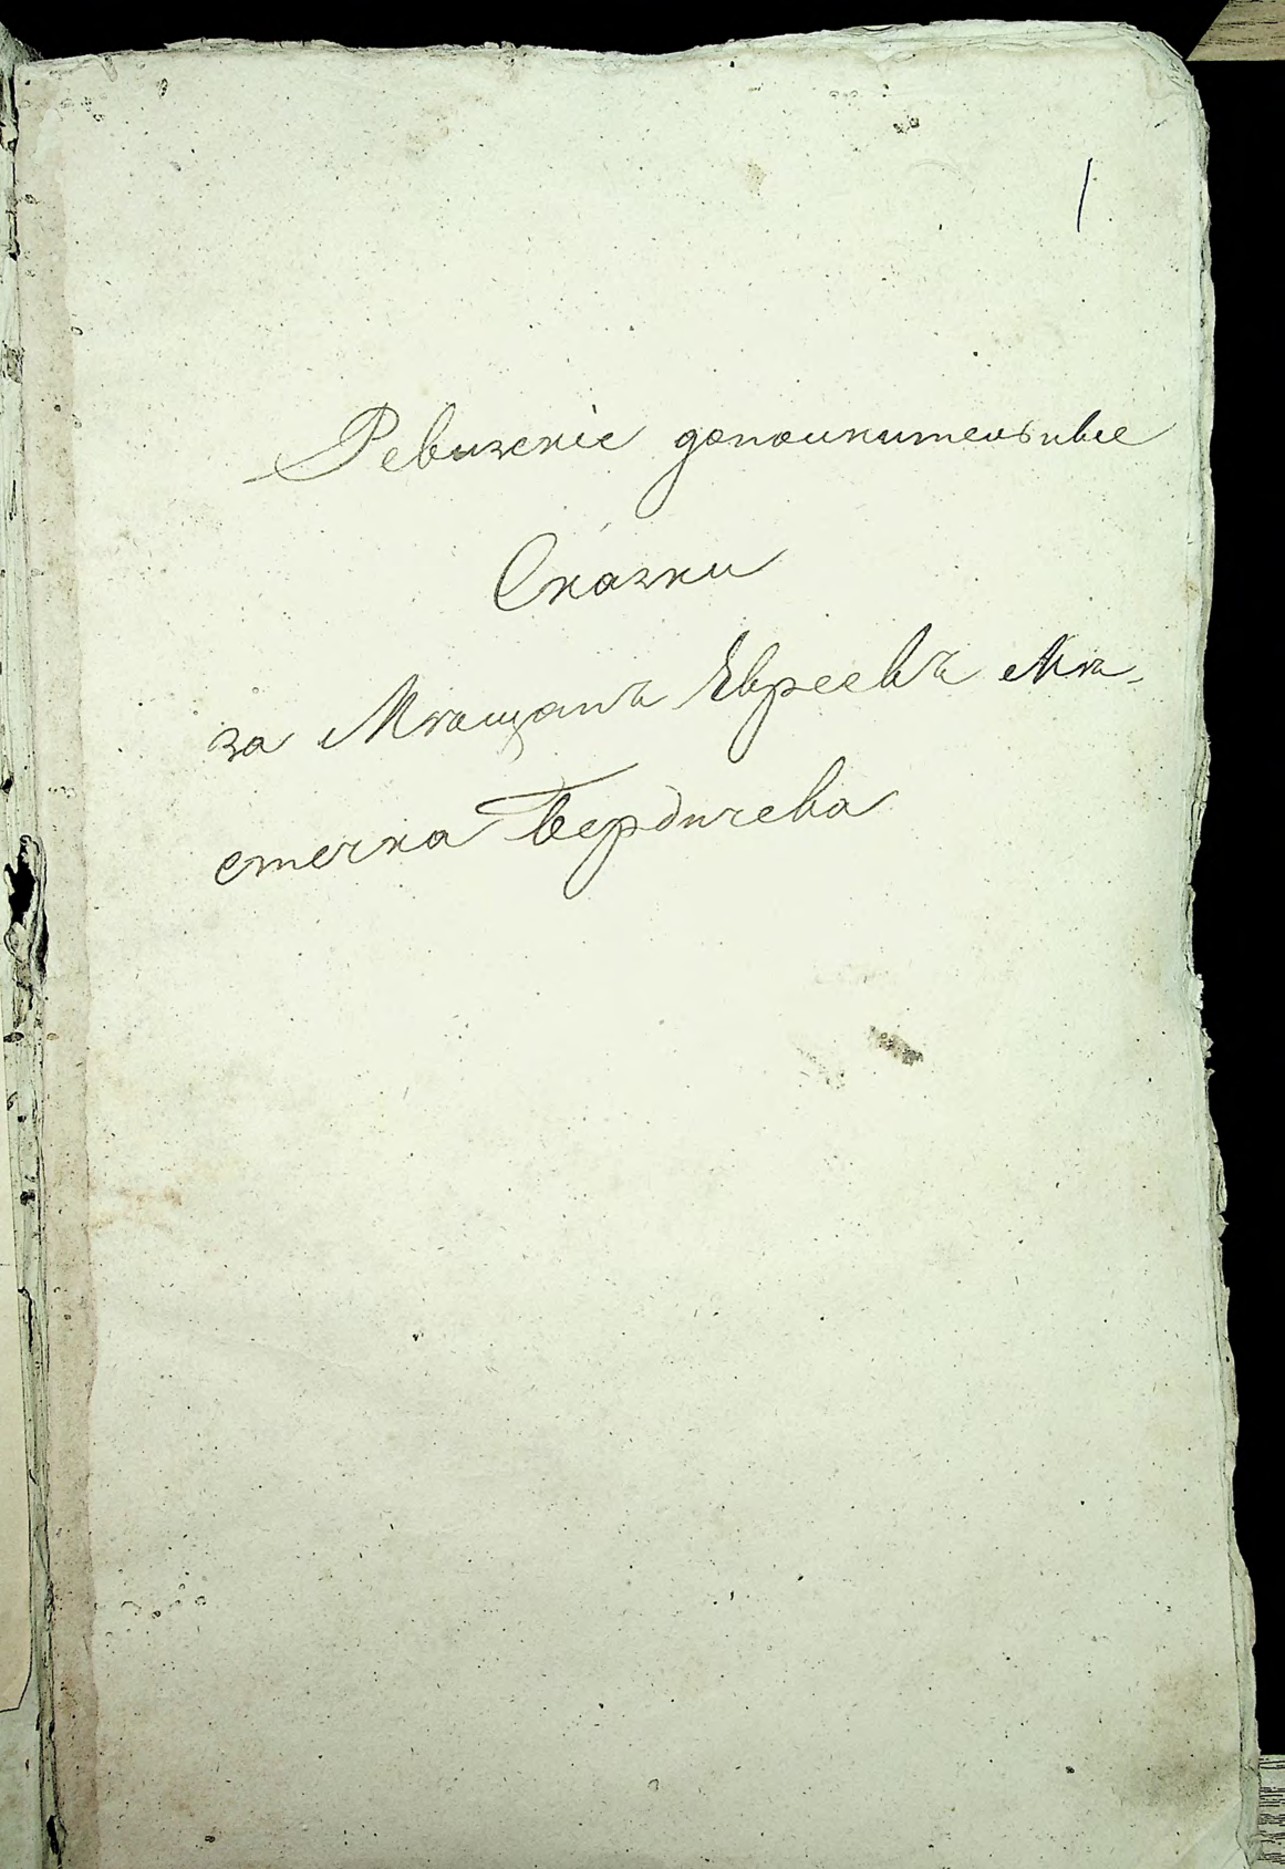 1
Ревизскіе дополнительные
Сказки
за Мѣщанъ Евреевъ Мѣ-
стечка Бердичева